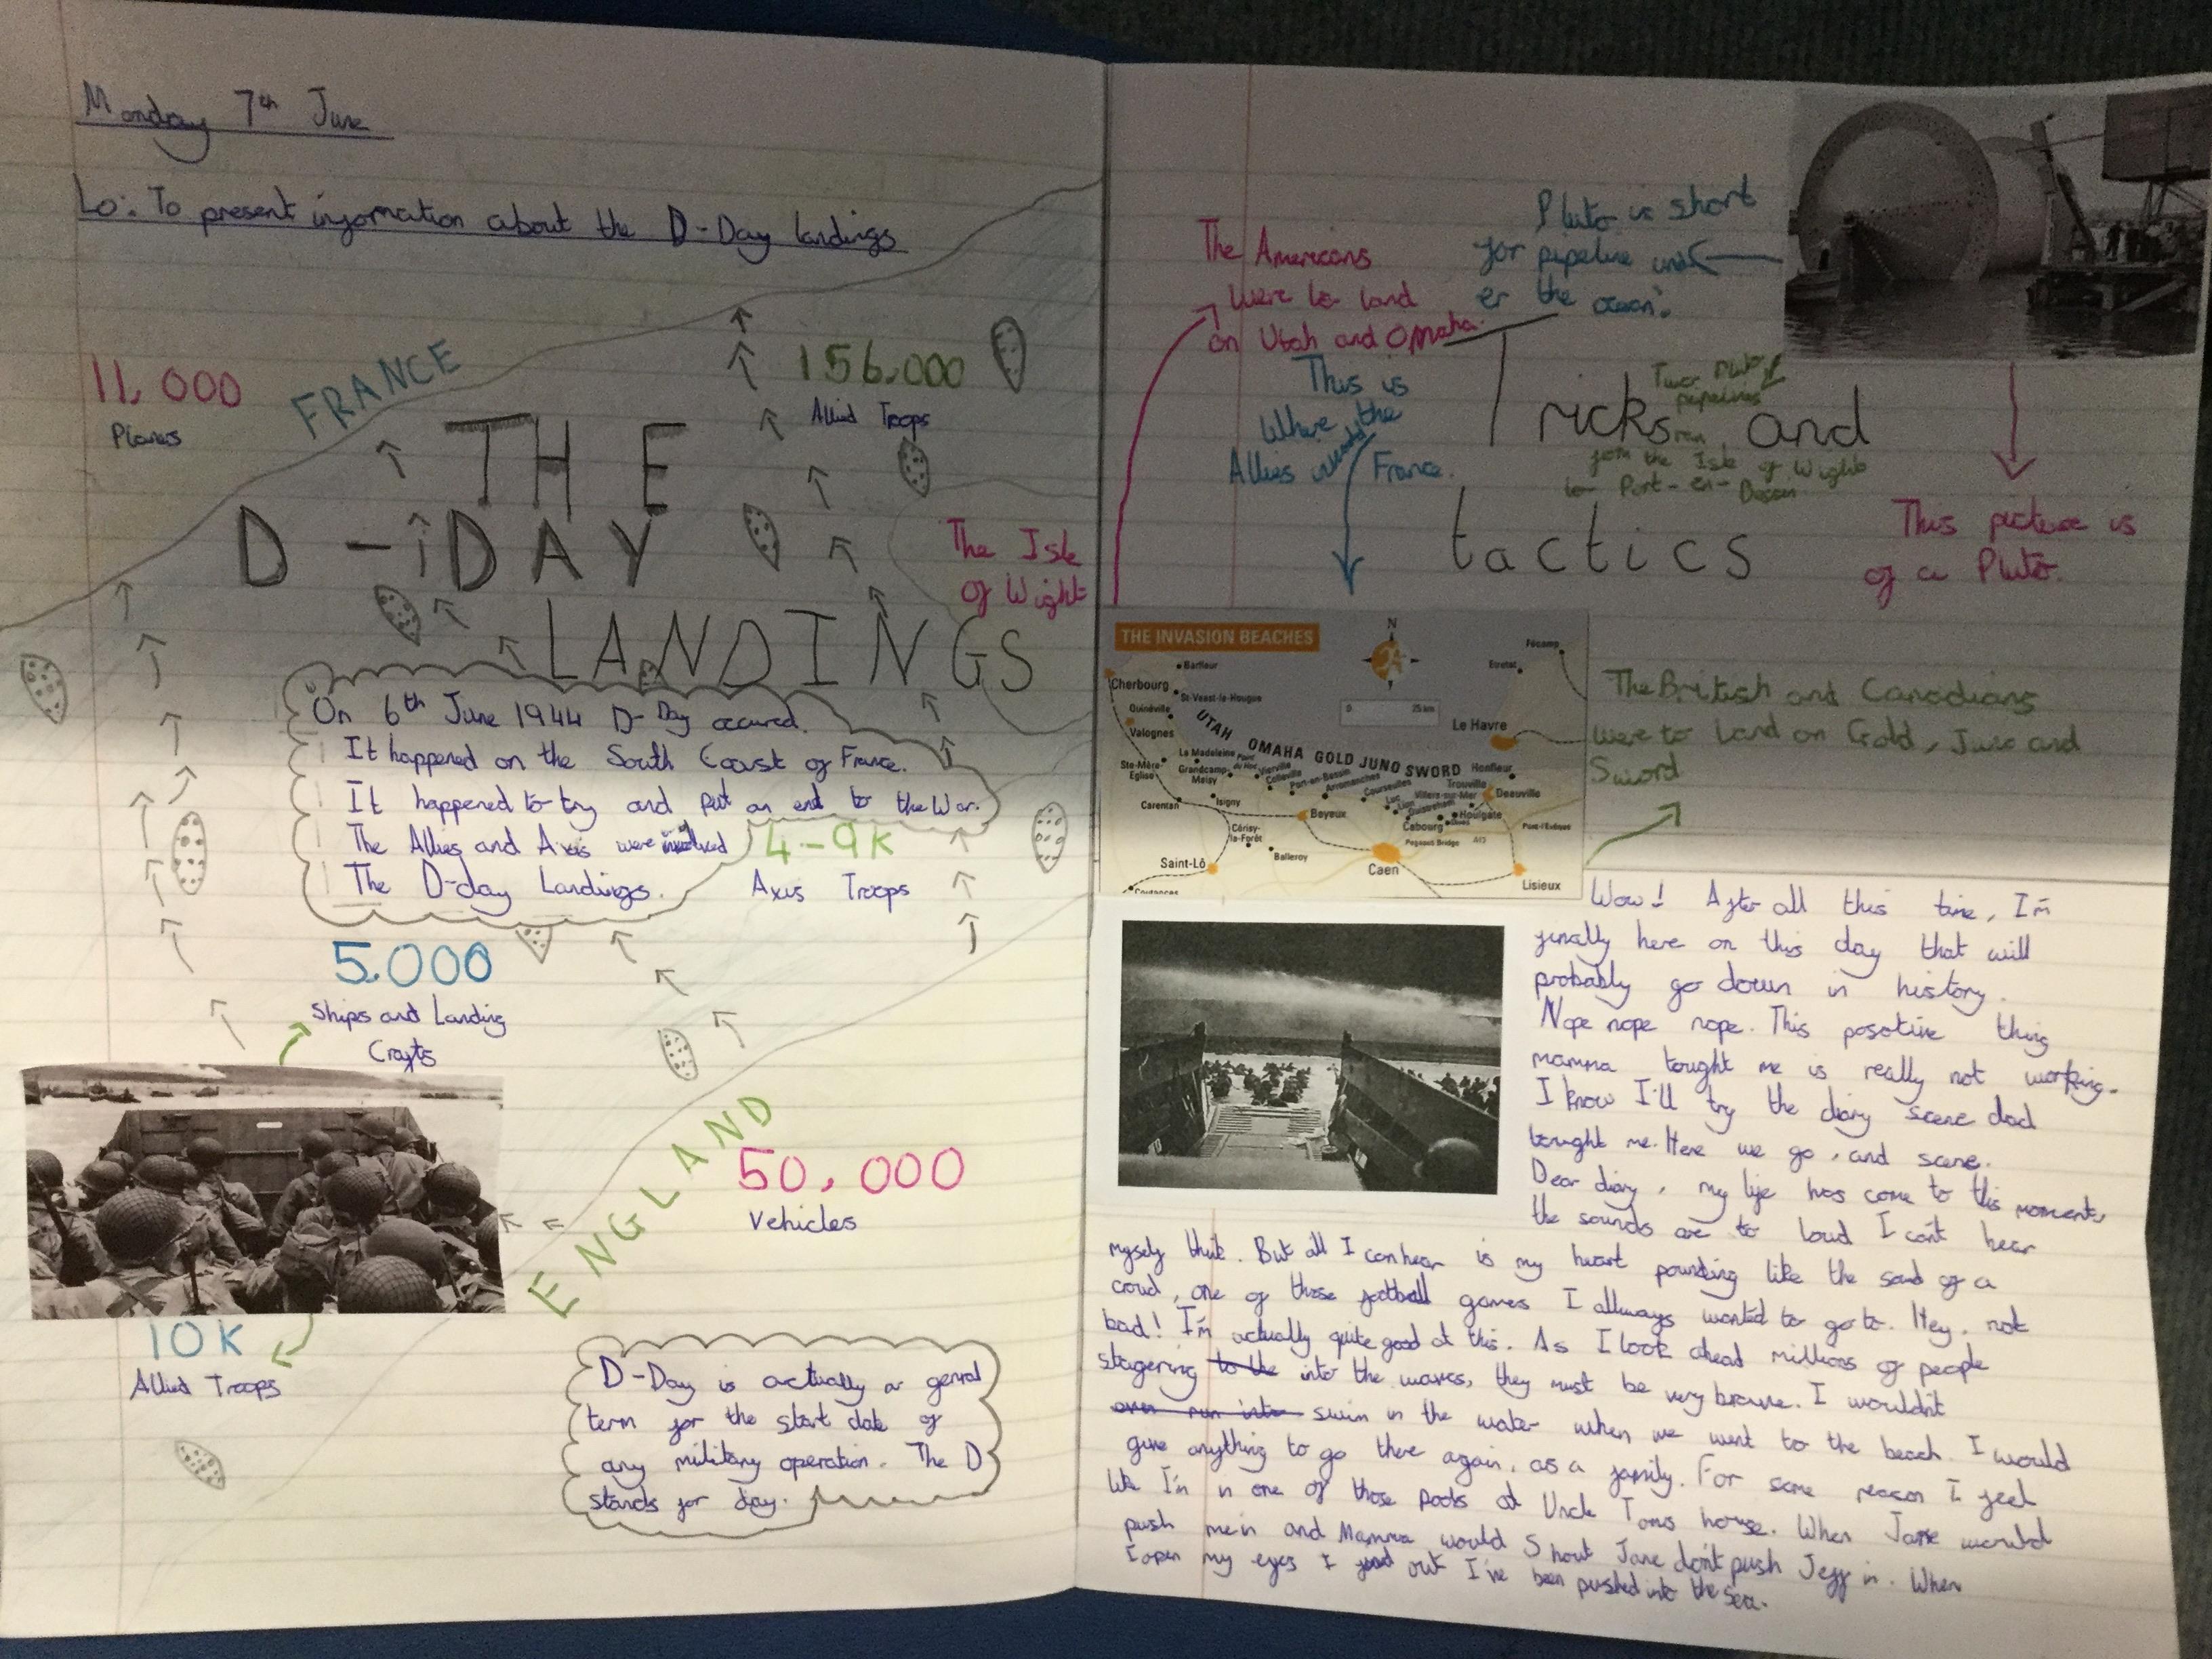 Monday 7th June
Lo: To present information about the D-Day landings
11,000
Planes
FRANCE
156,000
Allied Troops
THE
D-DAY
LANDINGS
The Isle
of Wight
On 6th June 1944 D-Day occured.
It happened on the South Coast of France.
It happened to try and put an end to the War.
The Allies and Axis were involved
The D-day Landings.
4-9k
Axis Troops
5,000
Ships and Landing
Crafts
ENGLAND
50,000
Vehicles
10k
Allied Troops
D-Day is actually a genral
term for the start date of
any military operation. The D
stands for day.
Pluto is short
for pipeline und
er the ocean.
The Americans
were to land
on Utah and Omaha.
This is
Where the
Allies France.
Tricks and
tactics
Two Pluto
pipelines
ran
from the Isle of Wight
to Port-en-Bessin.
This picture is
of a Pluto.
THE INVASION BEACHES
N
Fécamp
Etretat
Barfleur
Cherbourg
St-Vaast-la-Hougue
Quinéville
Valognes
0 25 km
Le Havre
UTAH OMAHA GOLD JUNO SWORD
La Madeleine
Pointe du Hoc
Vierville
Colleville
Port-en-Bessin
Arromanches
Courseulles
Luc
Lion
Ouistreham
Villers-sur-Mer
Trouville
Honfleur
Deauville
Ste-Mère-Eglise
Grandcamp-Maisy
Carentan
Isigny
Bayeux
Cabourg
Houlgate
Pont-l'Evêque
Pegasus Bridge
A13
Cérisy-la-Forêt
Balleroy
Saint-Lô
Caen
Lisieux
Coutances
The British and Canadians
were to Land on Gold, Juno and
Sword
Wow! After all this time, I'm
finally here on this day that will
probably go down in history.
Nope nope nope. This posotive thing
mamma tought me is really not working.
I know I'll try the diary scene dad
tought me. Here we go, and scene.
Dear diary, my life has come to this moment,
the sounds are to loud I can't hear
myself think. But all I can hear is my heart pounding like the sound of a
croud, one of those football games I allways wanted to go to. Hey, not
bad! I'm actually quite good at this. As I look ahead millions of people
stagering to the into the waves, they must be very brave. I wouldn't
even run into swim in the water when we went to the beach. I would
give anything to go there again, as a family. For some reason I feel
like I'm in one of those pools at Uncle Toms house. When Jane would
push me in and Mamma would Shout Jane don't push Jeff in. When
I open my eyes I find out I've been pushed into the Sea.